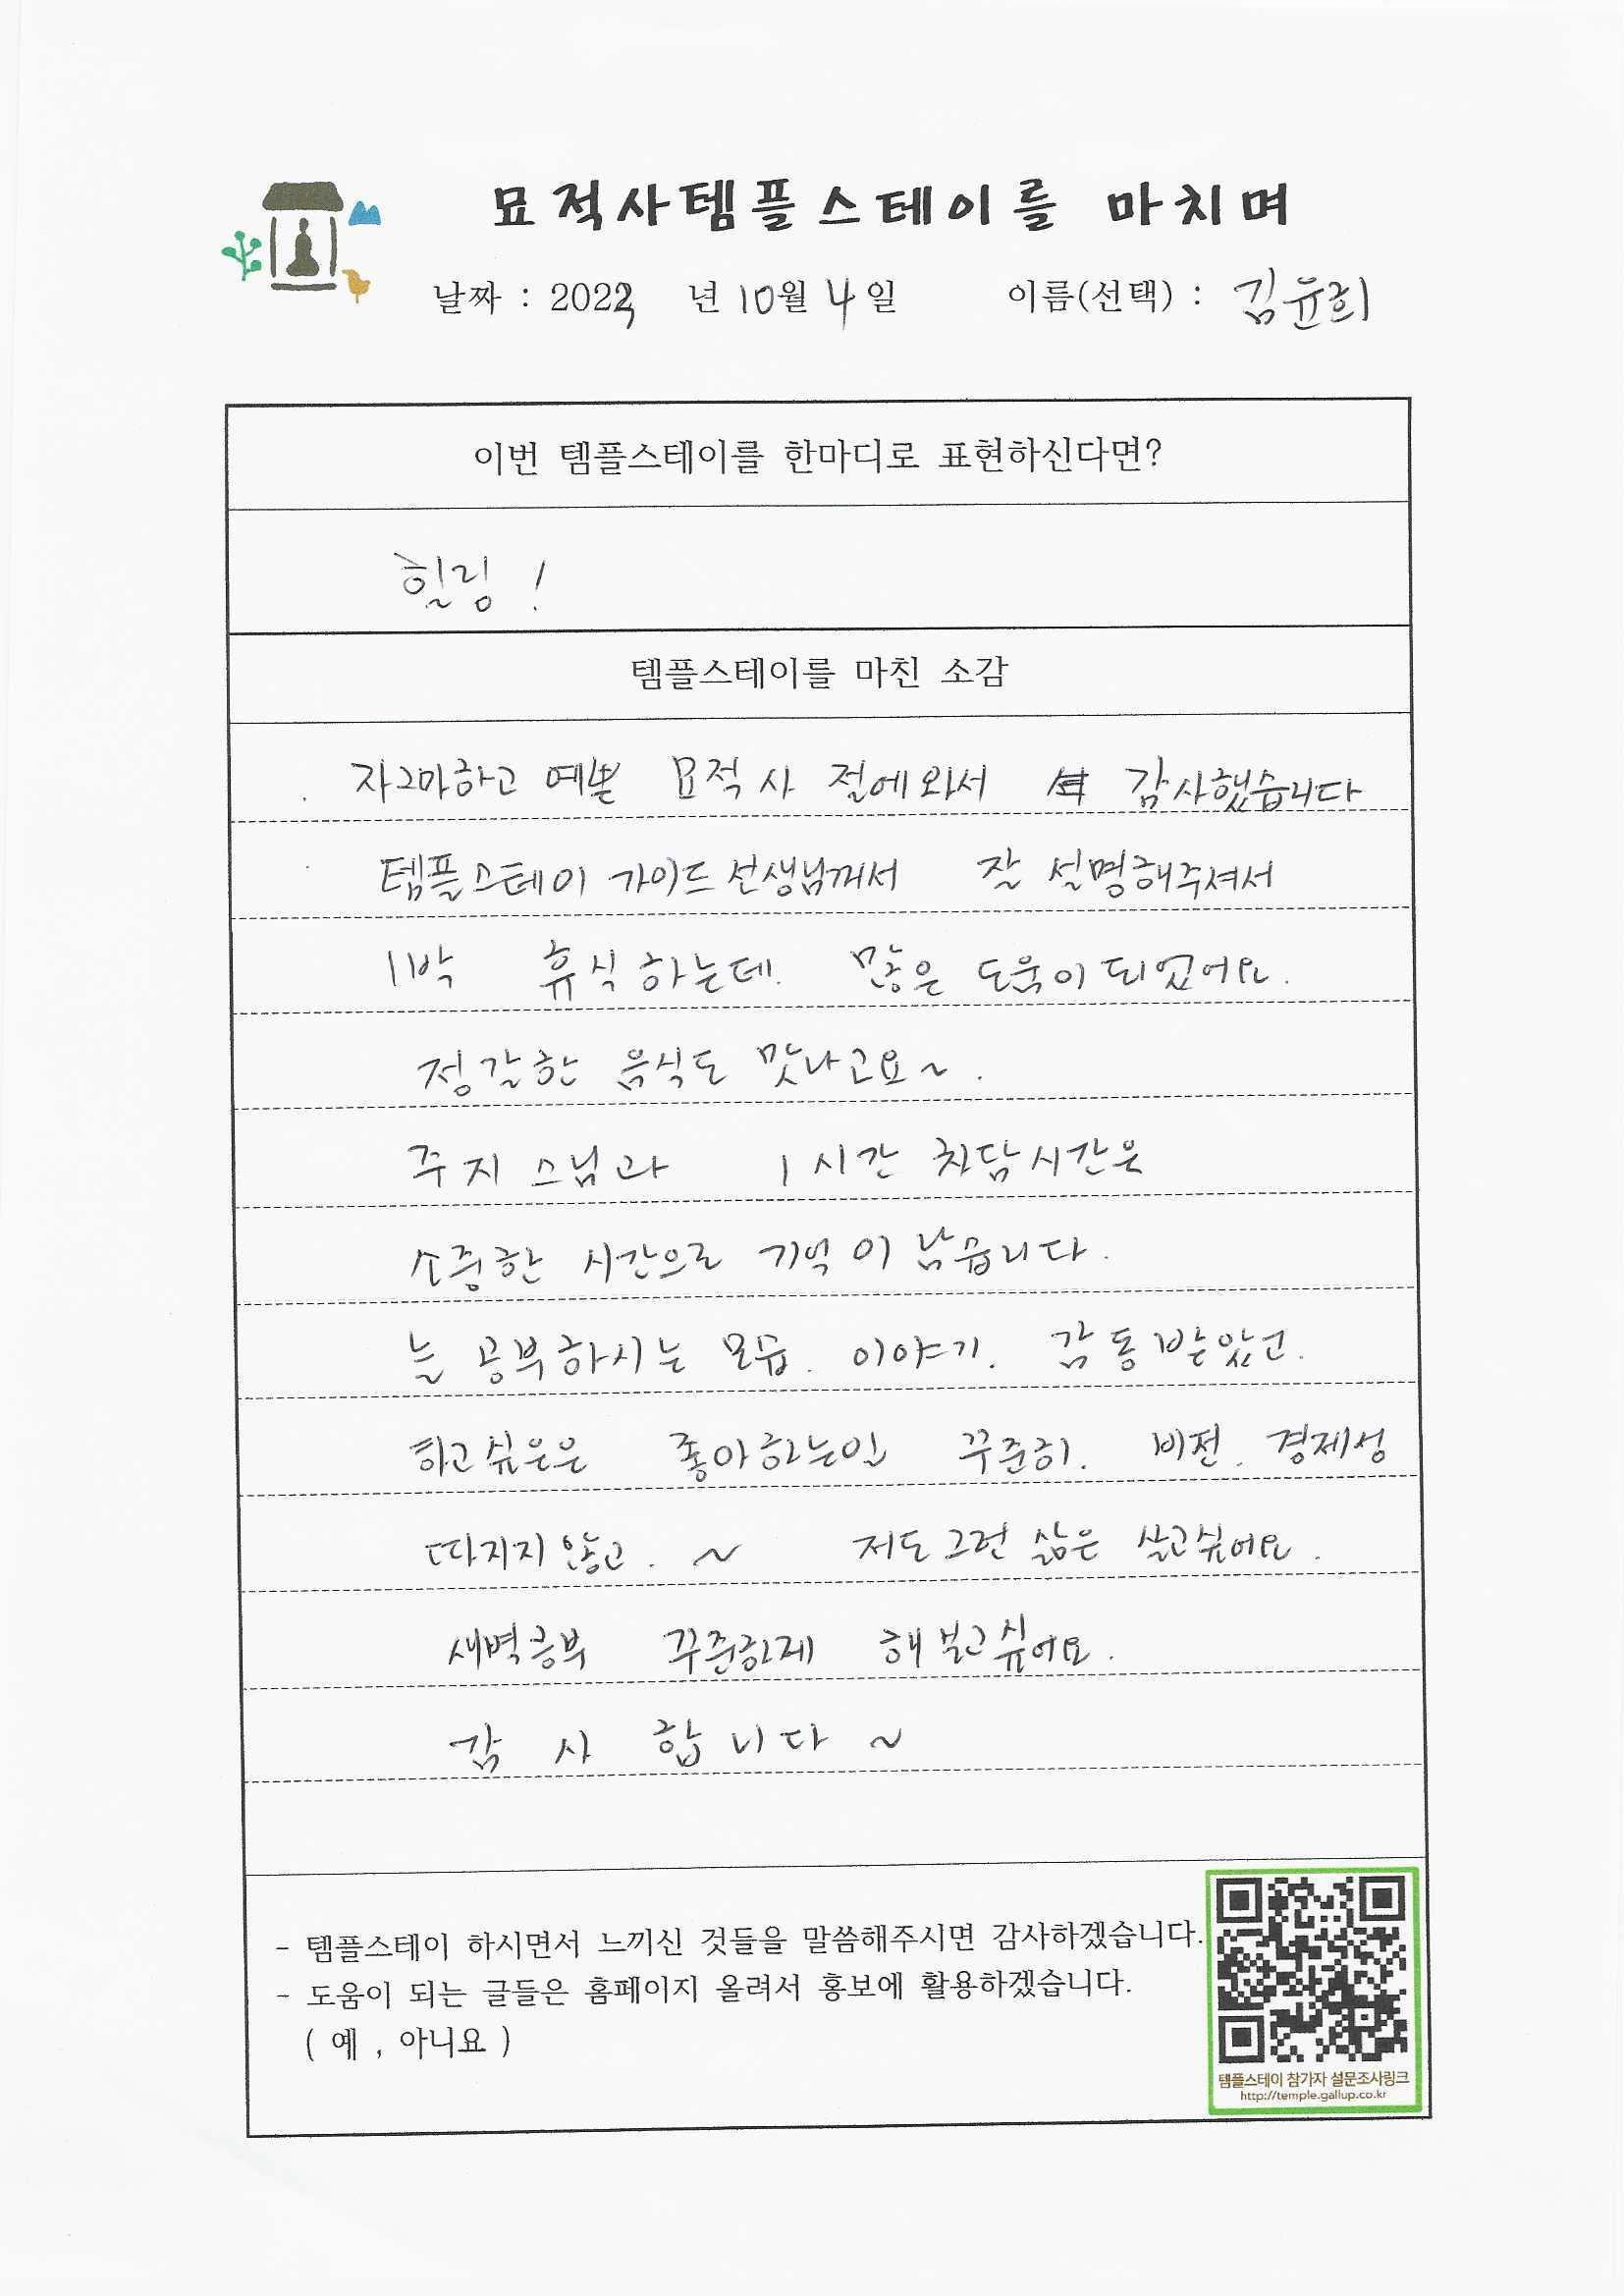 묘적사템플스테이를 마치며
날짜 : 2023 년 10월 4일 이름(선택) : 김윤희
이번 템플스테이를 한마디로 표현하신다면?
힐링 !
템플스테이를 마친 소감
자그마하고 예쁜 묘적사 절에와서 감사했습니다
템플스테이 가이드 선생님께서 잘 설명해주셔서
1박 휴식하는데. 많은 도움이 되었어요.
정갈한 음식도 맛나고요~.
주지 스님과 1시간 차담시간은
소중한 시간으로 기억이 남습니다.
늘 공부하시는 모습. 이야기. 감동받았고.
하고싶은은 좋아하는일 꾸준히. 비전. 경제성
따지지 않고. ~ 저도 그런 삶은 살고싶어요.
새벽공부 꾸준하게 해보고싶어요.
감사합니다~
- 템플스테이 하시면서 느끼신 것들을 말씀해주시면 감사하겠습니다.
- 도움이 되는 글들은 홈페이지 올려서 홍보에 활용하겠습니다.
( 예 , 아니요 )
템플스테이 참가자 설문조사링크
http://temple.gallup.co.kr